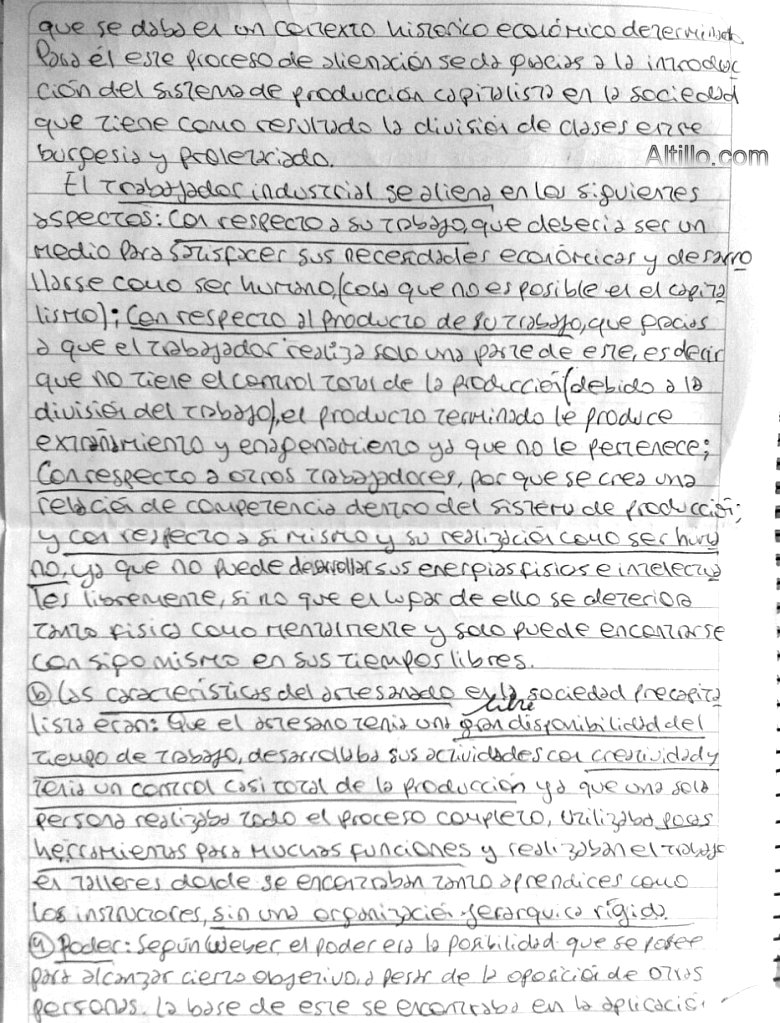 que se daba en un contexto historico económico determinado
Para él este proceso de alienación se da gracias a la introduc
ción del sistema de producción capitalista en la sociedad
que tiene como resultado la división de clases entre
burgesia y proletariado.
Altillo.com
El trabajador industrial se aliena en los siguientes
aspectos: Con respecto a su trabajo, que deberia ser un
medio para satisfacer sus necesidades económicas y desarro
llarse como ser humano, (cosa que no es posible en el capita
lismo); Con respecto al producto de su trabajo, que gracias
a que el trabajador realiza solo una parte de este, es decir
que no tiene el control total de la producción (debido a la
división del trabajo), el producto terminado le produce
extrañamiento y enagenamiento ya que no le pertenece;
Con respecto a otros trabajadores, por que se crea una
relación de competencia dentro del sistema de producción;
y con respecto a si mismo y su realización como ser huma
no, ya que no puede desarrollar sus energias fisicas e intelectua
les libremente, si no que en lugar de ello se deteriora
tanto fisica como mentalmente y solo puede encontrarse
con sigo mismo en sus tiempos libres.
b) Las características del artesanado en la sociedad precapita
lista eran: Que el artesano tenia una gran libre disponibilidad del
tiempo de trabajo, desarrollaba sus actividades con creatividad y
tenia un control casi total de la producción ya que una sola
persona realizaba todo el proceso completo, utilizaba pocas
herramientas para muchas funciones y realizaban el trabajo
en talleres donde se encontraban tanto aprendices como
los instructores, sin una organización jerarquica rígida.
4) Poder: Según Weber, el poder era la posibilidad que se posee
para alcanzar cierto objetivo, a pesar de la oposición de otras
personas. La base de este se encontraba en la aplicació